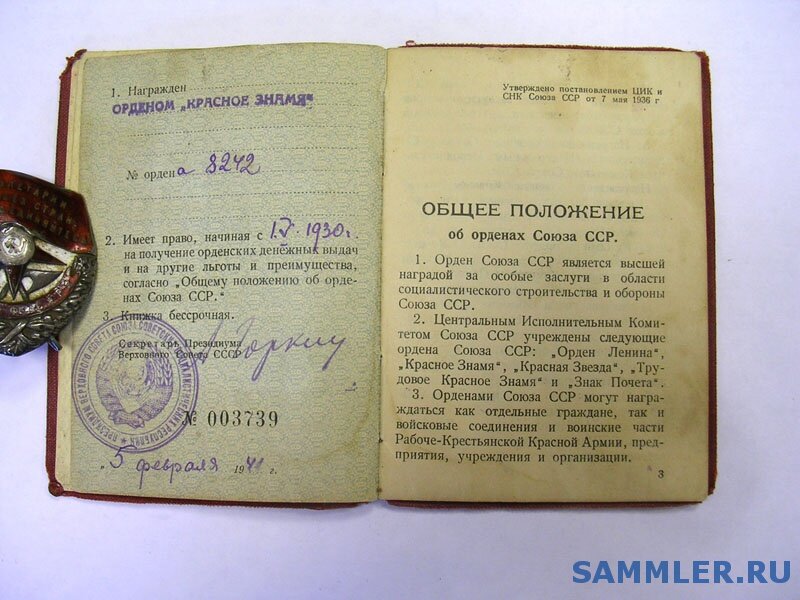 1. Награжден
ОРДЕНОМ „КРАСНОЕ ЗНАМЯ"
№ ордена 8242
2. Имеет право, начиная с 1.V.1930г.
на получение орденских денежных выдач
и на другие льготы и преимущества,
согласно „Общему положению об орде-
нах Союза ССР."
3. Книжка бессрочная.
Секретарь Президиума
Верховного Совета СССР
А Горкин
№ 003739
„5 февраля 1941 г.
Утверждено постановлением ЦИК и
СНК Союза ССР от 7 мая 1936 г
ОБЩЕЕ ПОЛОЖЕНИЕ
об орденах Союза ССР.
1. Орден Союза ССР является высшей
наградой за особые заслуги в области
социалистического строительства и обороны
Союза ССР.
2. Центральным Исполнительным Коми-
тетом Союза ССР учреждены следующие
ордена Союза ССР: „Орден Ленина",
„Красное Знамя", „Красная Звезда", „Тру-
довое Красное Знамя" и „Знак Почета".
3. Орденами Союза ССР могут награ-
ждаться как отдельные граждане, так и
войсковые соединения и воинские части
Рабоче-Крестьянской Красной Армии, пред-
приятия, учреждения и организации.
3
SAMMLER.RU